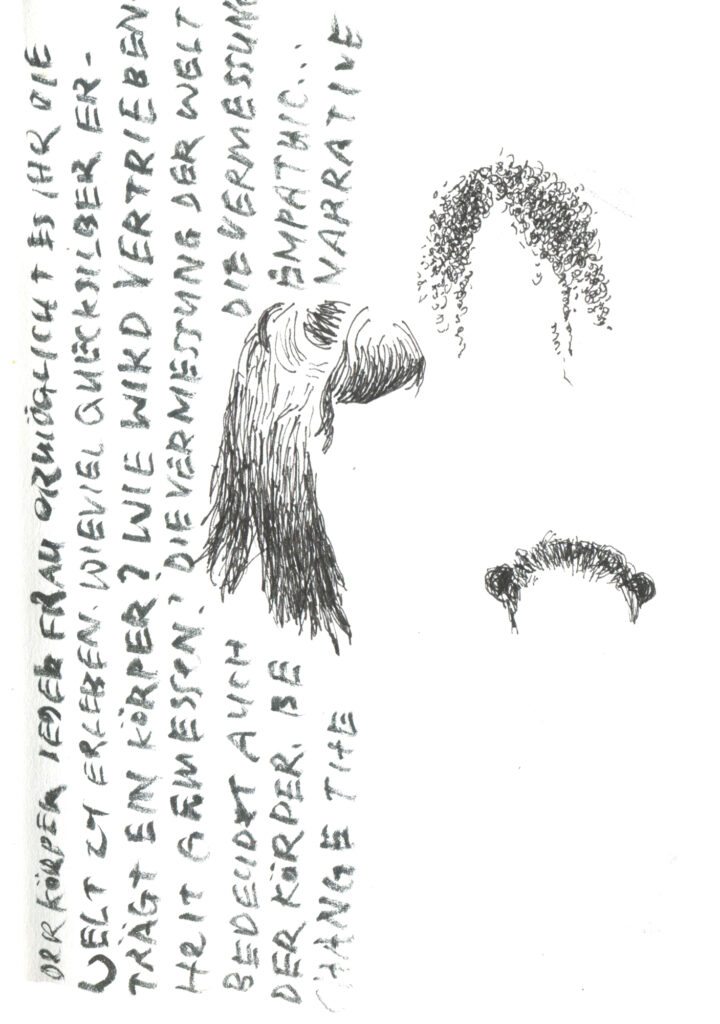 DER KÖRPER JEDER FRAU ERMÖGLICHT ES IHR DIE
WELT ZU ERLEBEN. WIEVIEL QUECKSILBER ER-
TRÄGT EIN KÖRPER? WIE WIRD VERTRIEBEN-
HEIT GEMESSEN? DIE VERMESSUNG DER WELT
BEDEUTET AUCH DIE VERMESSUNG
DER KÖRPER. BE EMPATHIC...
CHANGE THE NARRATIVE